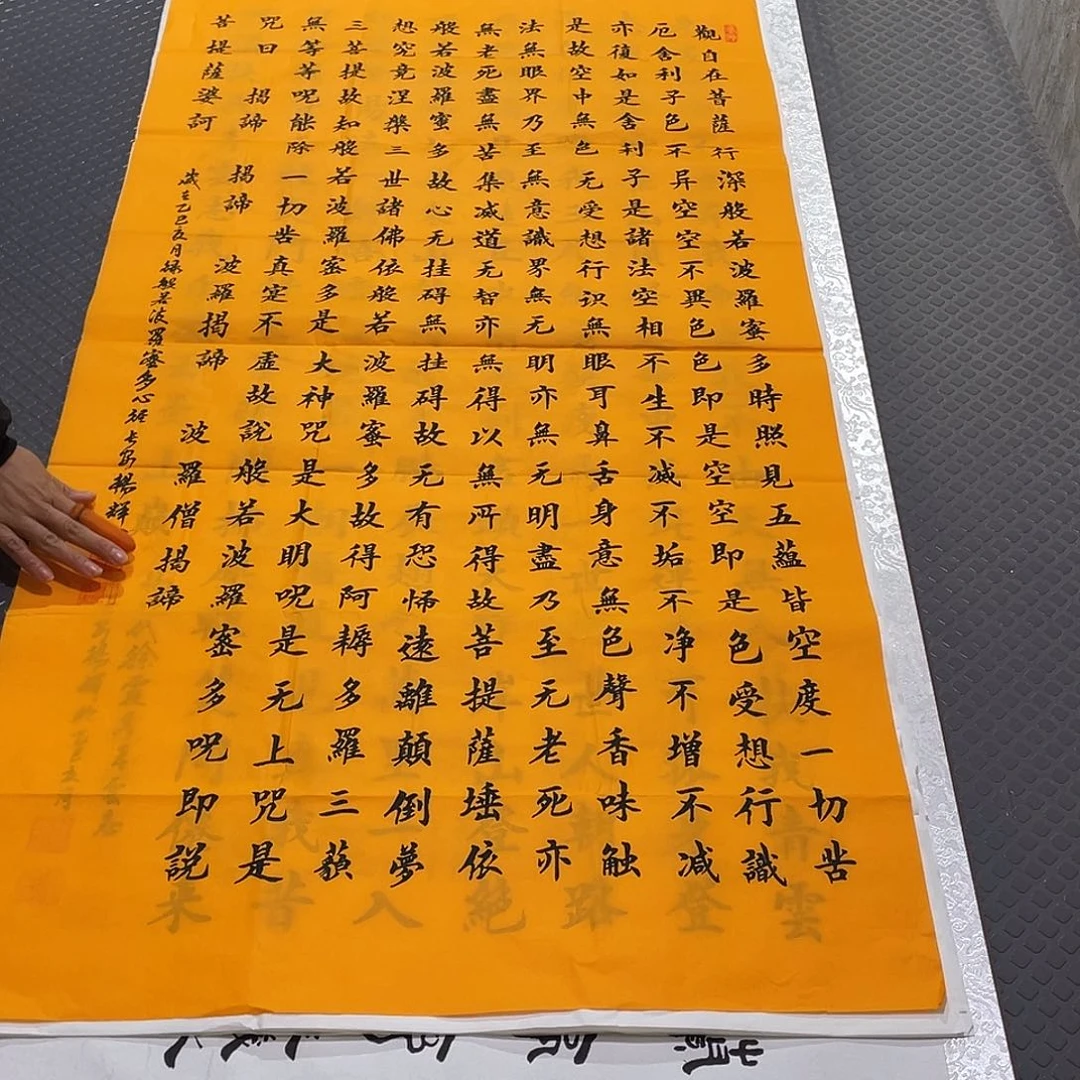 觀自在菩薩行深般若波羅蜜多時照見五蘊皆空度一切苦
厄舍利子色不异空空不異色色即是空空即是色受想行識
亦復如是舍利子是諸法空相不生不滅不垢不净不增不减
是故空中無色无受想行识無眼耳鼻舌身意無色聲香味触
法無眼界乃至無意識界無无明亦無无明盡乃至无老死亦
無老死盡無苦集滅道无智亦無得以無所得故菩提薩埵依
般若波羅蜜多故心无挂碍無挂碍故无有恐怖遠離顛倒夢
想究竟涅槃三世諸佛依般若波羅蜜多故得阿耨多羅三藐
三菩提故知般若波羅蜜多是大神咒是大明呪是无上咒是
無等等呪能除一切苦真寔不虛故說般若波羅蜜多呪即説
咒曰 揭諦 揭諦 波羅揭諦 波羅僧揭諦
菩提薩婆訶
歲在乙巳夏月録般若波羅蜜多心経長安楊輝